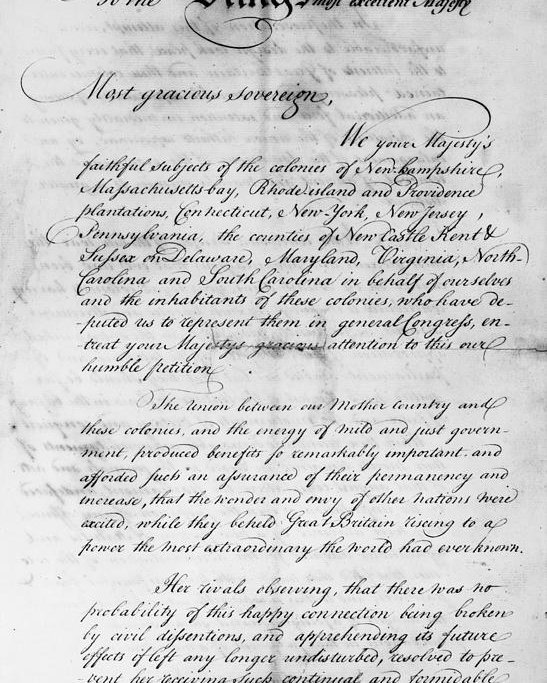 To the Kings most excellent Majesty
Most gracious Sovereign,
We your Majesty's
faithful subjects of the colonies of New-hampshire,
Massachusetts-bay, Rhode island and Providence
plantations, Connecticut, New-York, New Jersey,
Pennsylvania, the counties of New Castle Kent &
Sussex on Delaware, Maryland, Virginia, North-
Carolina and South Carolina in behalf of ourselves
and the inhabitants of these colonies, who have de-
puted us to represent them in general Congress, en-
treat your Majestys gracious attention to this our
humble petition.
The Union between our Mother Country and
these colonies, and the energy of mild and just govern-
ment, produced benefits so remarkably important, and
afforded such an assurance of their permanency and
increase, that the wonder and envy of other nations were
excited, while they beheld Great Britain riseing to a
power the most extraordinary the world had ever known.
Her rivals observing, that there was no
probability of this happy connection being broken
by civil dissentions, and apprehending its future
effects if left any longer undisturbed, resolved to pre-
vent her receiving such continual and formidable